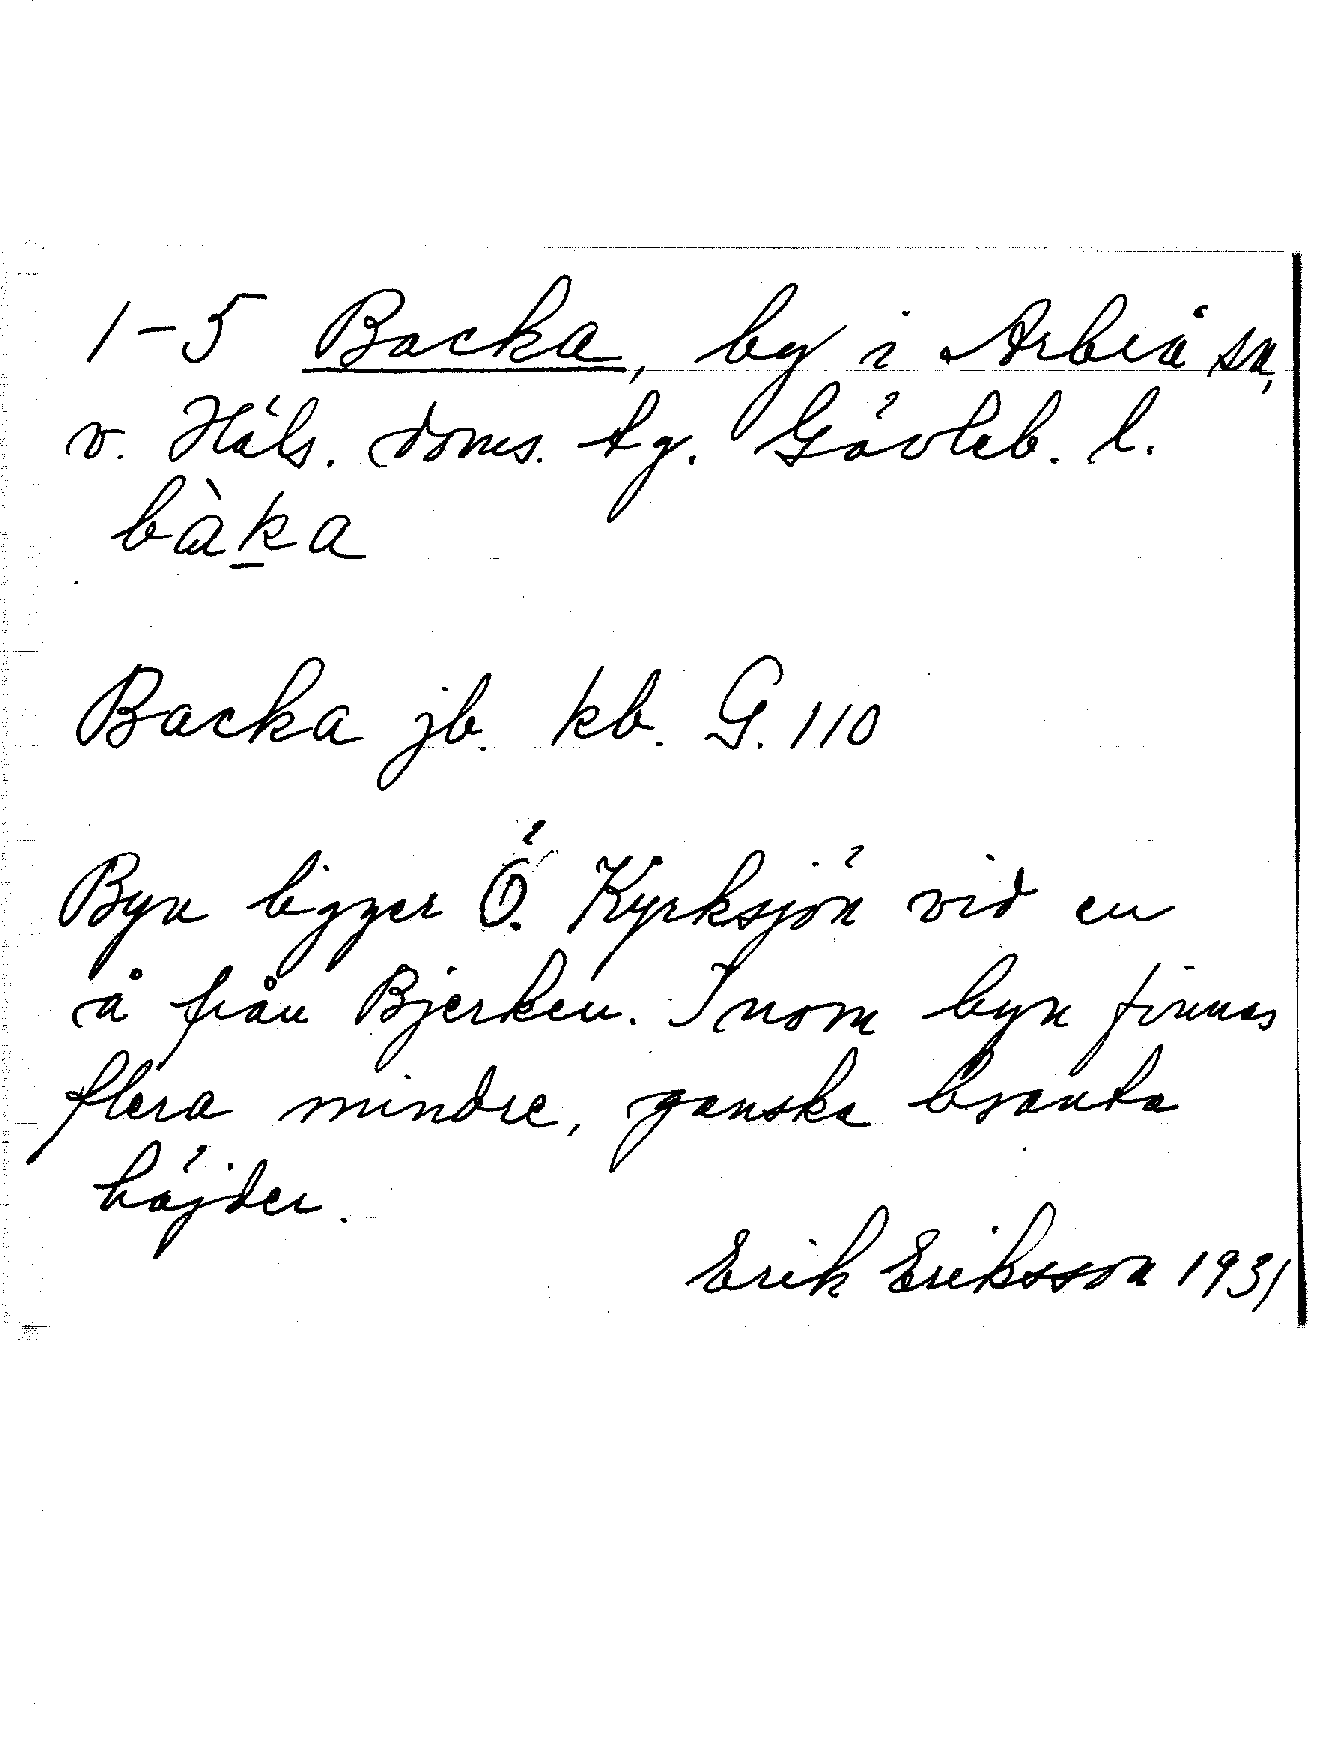 1-5 Backa, by i Arbrå sn,
v. Häls. doms. tg. Gävleb. l.
bàḵa
Backa jb. kb. G. 110
Byn ligger Ö. Kyrksjön vid en
å från Bjerken. Inom byn finnas
flera mindre, ganska branta
höjder.
Erik Eriksson 1931